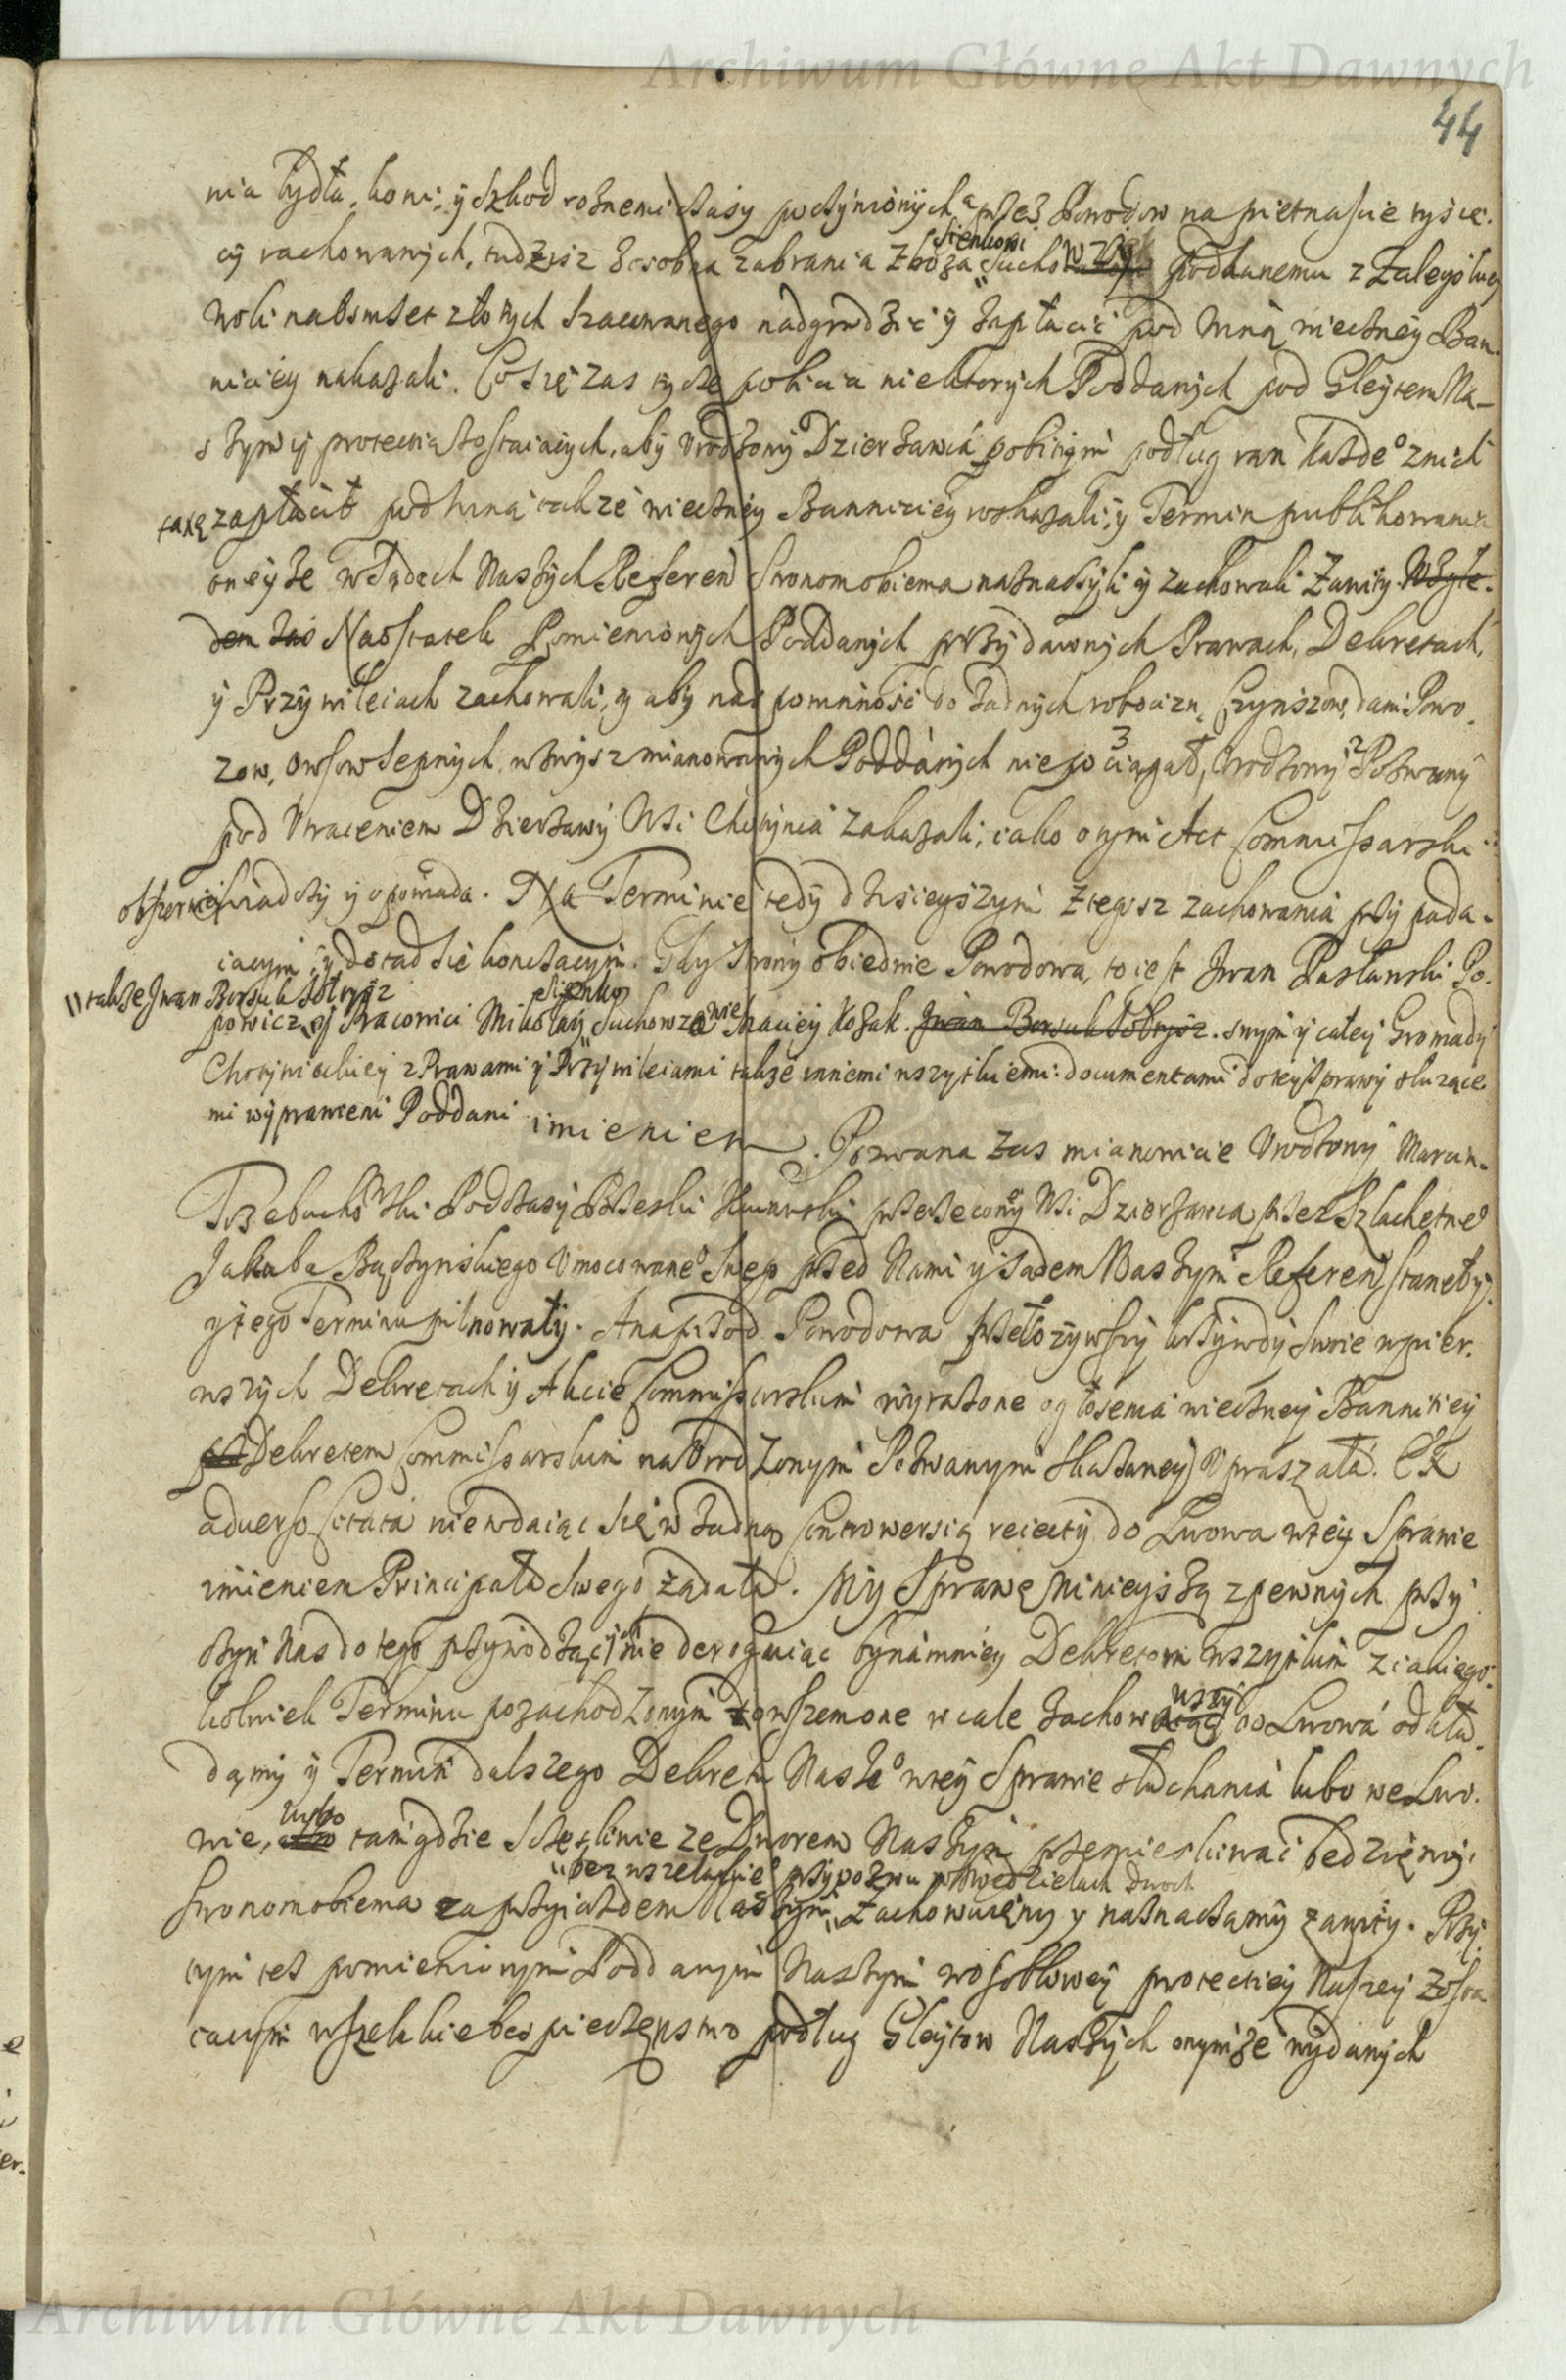 Archiwum Główne Akt Dawnych
44
nia bydła, koni, y szkod rożnemi czasy poczynionych przez Powodow na pietnascie tysię-
cy rachowanych, tudzisz zosobna zabrania zboża Sienkowi Sucho Poddanemu z Zaleyskiey
Woli na osmset złotych szacowanego nadgrodzić y zapłacić pod winą wieczney Ban-
niciey nakazali. Co się zas tycze pobicia niektorych Poddanych pod Gleytem Na-
szym y protectią zostaiących, aby Urodzony Dzierzawca pobitym podług ran każdego znich
taxę zapłacił pod winą także wieczney Banniciey wskazali, y Termin publikowania
oneyże w Sądach Naszych Referen Stronom obiema naznaczyli y zachowali Zawity. Wzglę-
dem zas Naostatek Pomienionych Poddanych przy dawnych Prawach, Dekretach,
y Przywileiach zachowali, y aby nad powinność do żadnych robocizn, Czynszow, dani Powo-
zow, Owsow sepnych, wzwysz mianowanych Poddanych nie pociągał, 3 Urodzony 2 Pozwany
pod Utraceniem Dzierzawy Wsi Chotynia zakazali, iako o tym Act Commissarski
obszerniey swiadczy y opowiada. Na Terminie tedy dzisieyszym z tegosz zachowania przypada-
iącym, y dotąd się konczącym. Gdy Strony obiedwie Powodowa, to iest Iwan Paslawski Po-
"także Iwan Borsuk Sołtysz
powicz, y Pracowici Mikołay Sienko Suchowzanie Maciey Kozak. Iwan Borsuk Sołtysz. swym y całey Gromady
Chotynieckiey z Prawami y Przywileiami także innemi wszytkiemi documentami do teyże sprawy słuzące-
mi wyprawieni Poddani imieniem. Pozwana zas mianowicie Urodzony Marcin
Trzebuchowski Podczaszy Brzeski Kuiawski przerzeczoney Wsi Dzierzawca przez Szlachetnego
Jakuba Bączynskiego Umocowanego Swego przed Nami y Sądem Naszym Referen stanęły,
y tego Terminu pilnowały. A naprzod Powodowa przełożywszy krzywdy swoie w pier-
wszych Dekretach y Akcie Commissarskim wyrażone ogłosenia wieczney Banniciey
Dekretem Commissarskim na Urodzonym Pozwanym skazaney Upraszała. Ex
adverso citata niewdaiąc się w żadną Controwersią reiecty do Lwowa w tey Sprawie
imieniem Principała Swego żądała. My Sprawę Ninieyszą z pewnych przy-
czyn Nas do tego przywodzących nie deroguiąc bynamniey Dekretom wszytkim z iakiego-
kolwiek Terminu pozachodzonym y owszem one w cale zachowuiąc wszy do Lwowa odkła-
damy y Termin dalszego Dekretu Naszego w tey Sprawie słuchania lubo we Lwo-
wie, lubo tam gdzie Szczęsliwie ze Dworem Naszym przemieszkiwać będziemy,
"bez wszelakiego przypozwu w Niedzielach dwoch
Stronom obiema za przyiazdem Naszym " Zachowuiemy y naznaczamy zawity. Przy
tym tez pomienionym Poddanym Naszym w osobliwey protectiey Naszey zosta-
iącym wszelkie bespieczęnstwo podług Gleytow Naszych onymże wydanych
Archiwum Główne Akt Dawnych